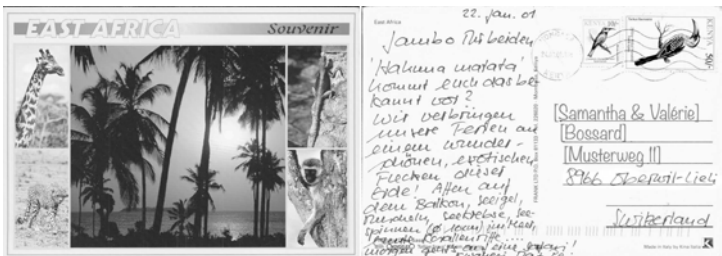 EAST AFRICA
Souvenir
East Africa
22. Jan. 01
Jambo Ihr beiden
'Hakuna matata'
kommt euch das be
kannt vor?
Wir verbringen
unsere Ferien an
einem wunder-
schönen, exotischen
Flecken dieser
Erde! Affen auf
dem Balkon, Seeigel,
Muscheln, Seekrebse, See-
spinnen (ø 10cm)
Korallenriffe ....
morgen geht's auf eine Safari!
KENYA
10/-
KENYA
50/-
[Samantha & Valérie]
[Bossard]
[Musterweg 11]
8966 Oberwil-Lieli
Switzerland
Made in Italy by
K